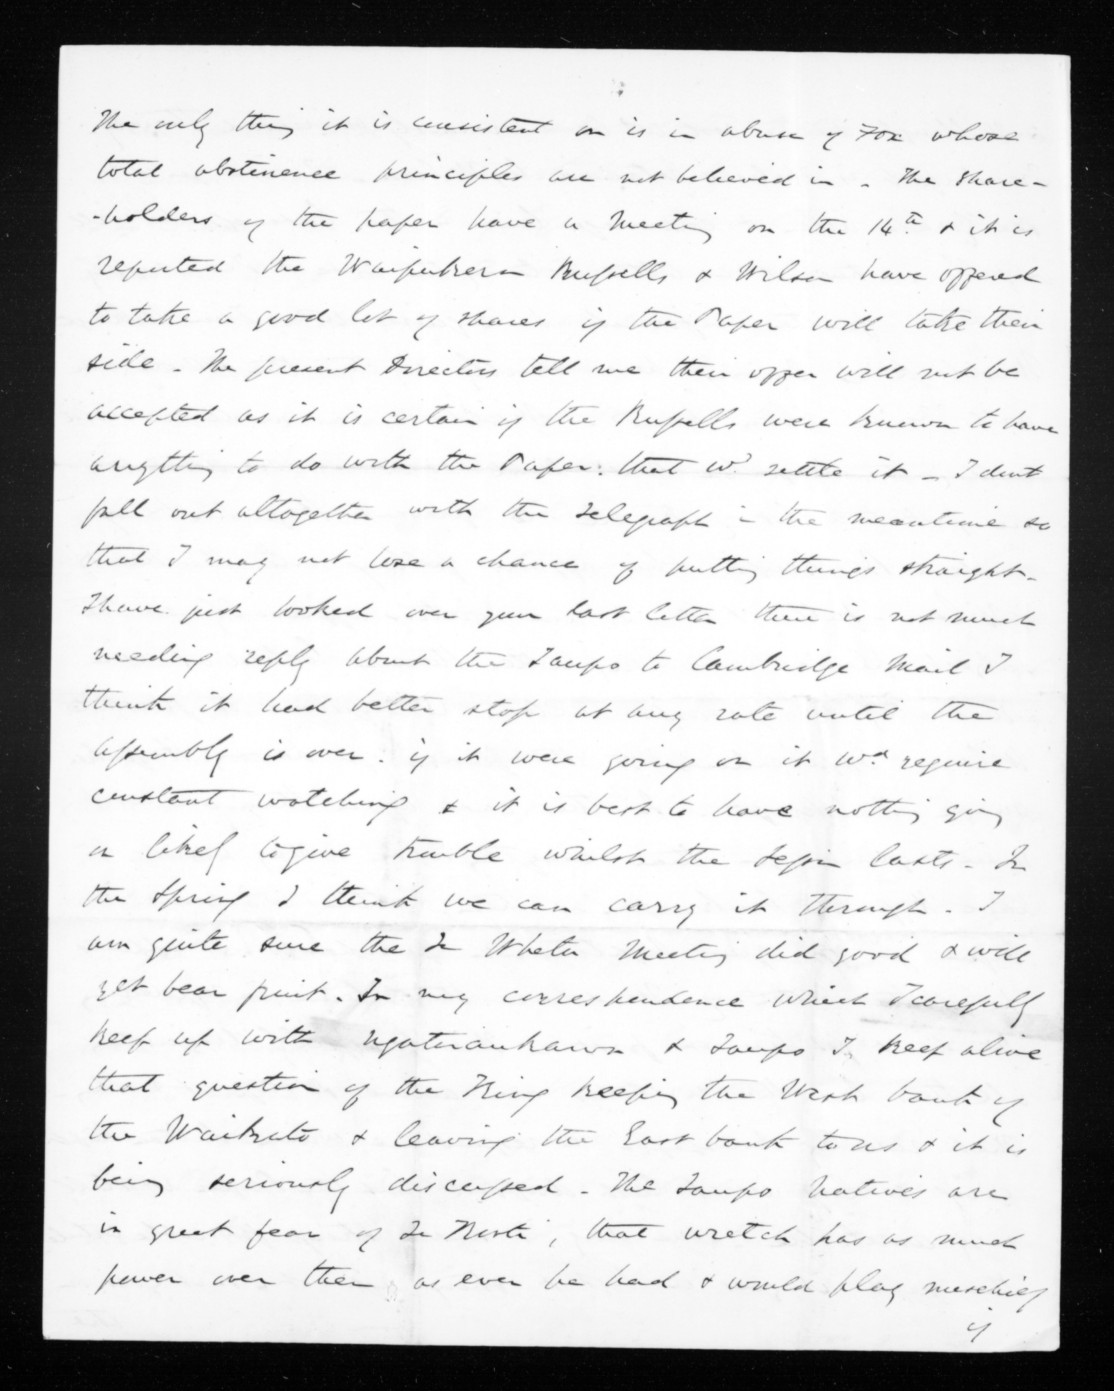 The only thing it is consistent on is in abuse of Fox whose
total abstinence principles are not believed in - The share-
-holders of the paper have a Meeting on the 14th & it is
reported the Waipukurau Russells & Wilson have offered
to take a good lot of shares if the Paper will take their
side - The present Directors tell me their offer will not be
accepted as it is certain if the Russells were known to have
anything to do with the Paper. that wd. settle it - I dont
fall out altogether with the Telegraph in the meantime so
that I may not lose a chance of putting things straight -
I have just looked over your last letter there is not much
needing reply about the Taupo to Cambridge Mail I
think it had better stop at any rate until the
Assembly is over. if it were going on it wd. require
constant watching & it is best to have nothing going
on likely to give trouble whilst the Session lasts - In
the Spring I think we can carry it through - I
am quite sure the Te Wheta Meeting did good & will
yet bear fruit. In my correspondence which I carefully
keep up with Ngatiraukawa & Taupo I keep alive
that question of the King keeping the West bank of
the Waikato & leaving the East bank to us & it is
being seriously discussed - The Taupo Natives are
in great fear of Te Kooti, that wretch has as much
power over them as ever he had & would play mischief
if